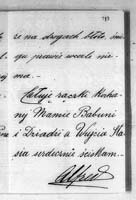 że na drogach błoto, śnie-
gu prawie wcale nie-
ma.
Całuję rączki Kocha-
nej Mamie Babuni
i Dziadzi a Wujcia Sta-
sia serdecznie ściskam.
Alfred